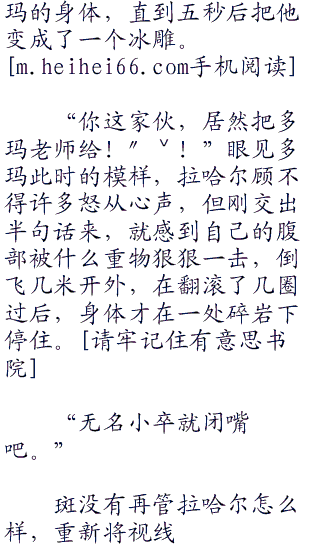 玛的身体，直到五秒后把他
变成了一个冰雕。
[m.heihei66.com手机阅读]
“你这家伙，居然把多
玛老师给！〞ˇ！”眼见多
玛此时的模样，拉哈尔顾不
得许多怒从心声，但刚交出
半句话来，就感到自己的腹
部被什么重物狠狠一击，倒
飞几米开外，在翻滚了几圈
过后，身体才在一处碎岩下
停住。[请牢记住有意思书
院]
“无名小卒就闭嘴
吧。”
斑没有再管拉哈尔怎么
样，重新将视线